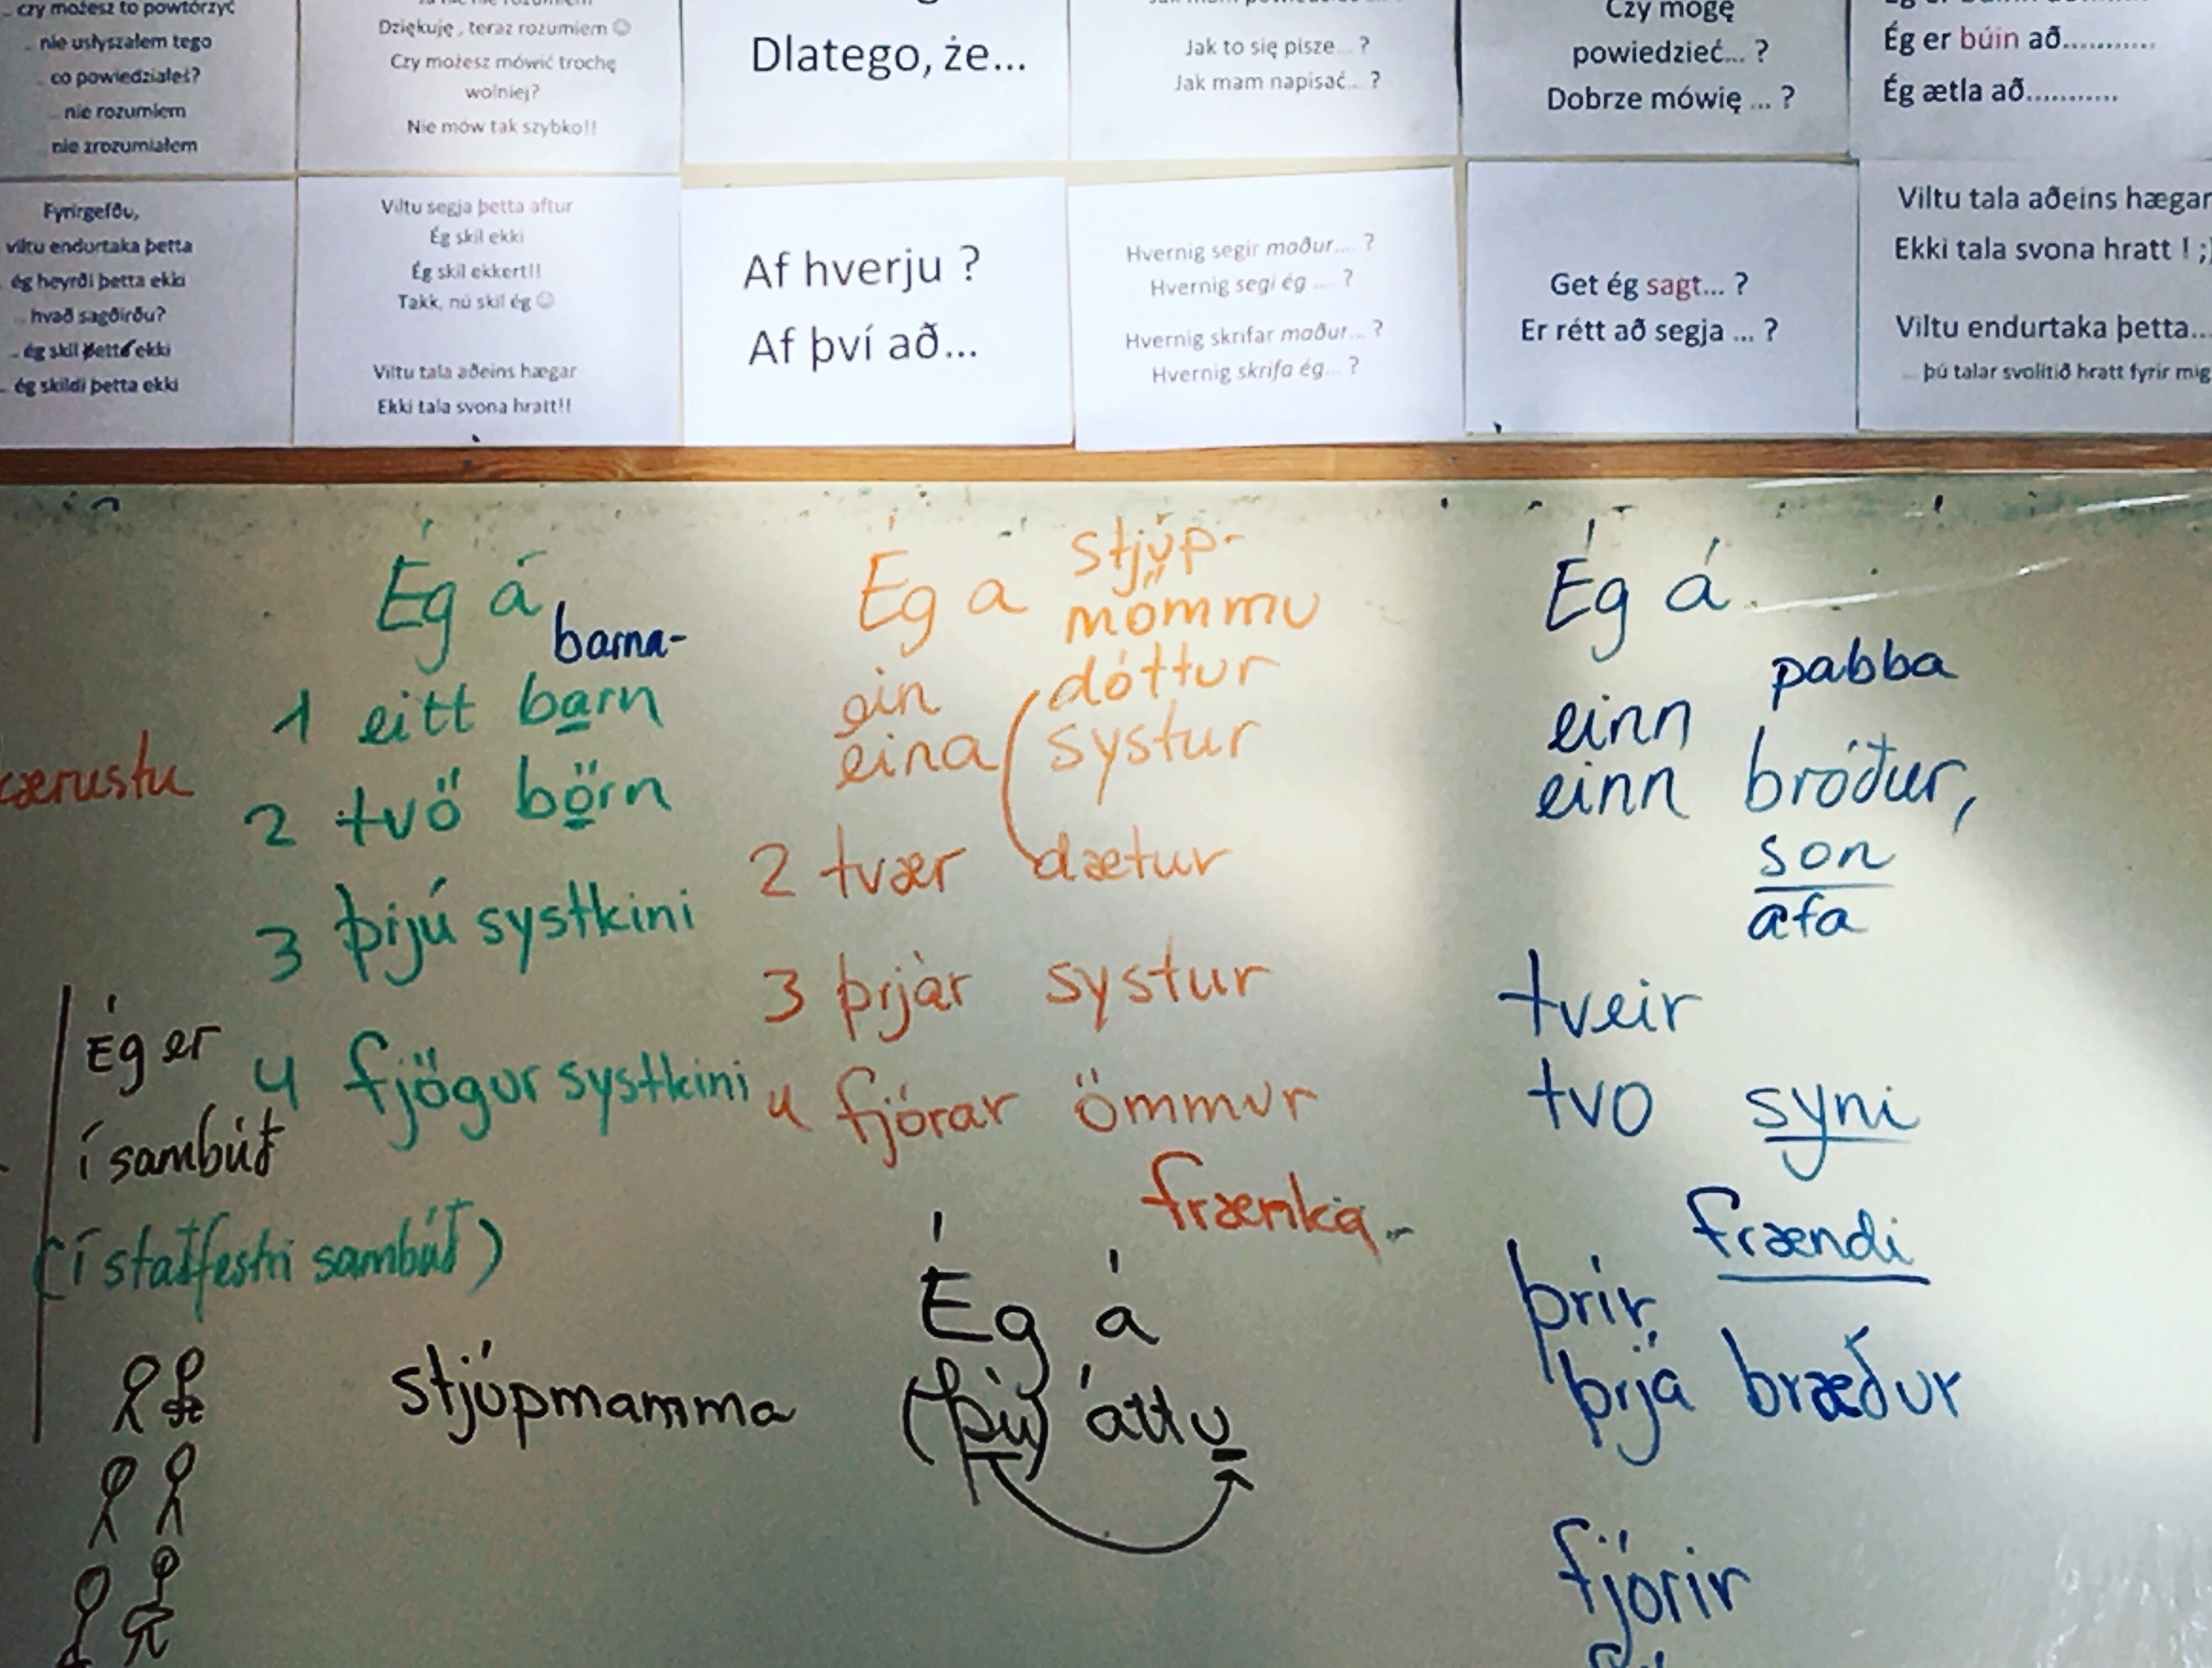 czy możesz to powtórzyć
.. nie usłyszałem tego
.. co powiedziałeś?
.. nie rozumiem
.. nie zrozumiałem
Dziękuję , teraz rozumiem ☺
Czy możesz mówić trochę
wolniej?
Nie mów tak szybko!!
Dlatego, że...
Jak to się pisze... ?
Jak mam napisać... ?
Czy mogę
powiedzieć... ?
Dobrze mówię ... ?
Ég er búin að...........
Ég ætla að...........
Fyrirgefðu,
viltu endurtaka þetta
ég heyrði þetta ekki
.. hvað sagðirðu?
.. ég skil þetta ekki
.. ég skildi þetta ekki
Viltu segja þetta aftur
Ég skil ekki
Ég skil ekkert!!
Takk, nú skil ég ☺
Viltu tala aðeins hægar
Ekki tala svona hratt!!
Af hverju ?
Af því að...
Hvernig segir maður.... ?
Hvernig segi ég .... ?
Hvernig skrifar maður... ?
Hvernig skrifa ég... ?
Get ég sagt... ?
Er rétt að segja ... ?
Viltu tala aðeins hægar
Ekki tala svona hratt ! ;)
Viltu endurtaka þetta...
... þú talar svolítið hratt fyrir mig
Ég á
barna-
1 eitt barn
2 tvö börn
3 þrjú systkini
4 fjögur systkini
Ég á stjúp-
mömmu
ein dóttur
eina systur
2 tvær dætur
3 þrjár systur
4 fjórar ömmur
frænka
Ég á
pabba
einn
einn bróður,
son
afa
tveir
tvo syni
frændi
þrír
þrjá bræður
fjórir
kærustu
Ég er
í sambúð
(í staðfestri sambúð)
stjúpmamma
Ég á
(þú) áttu